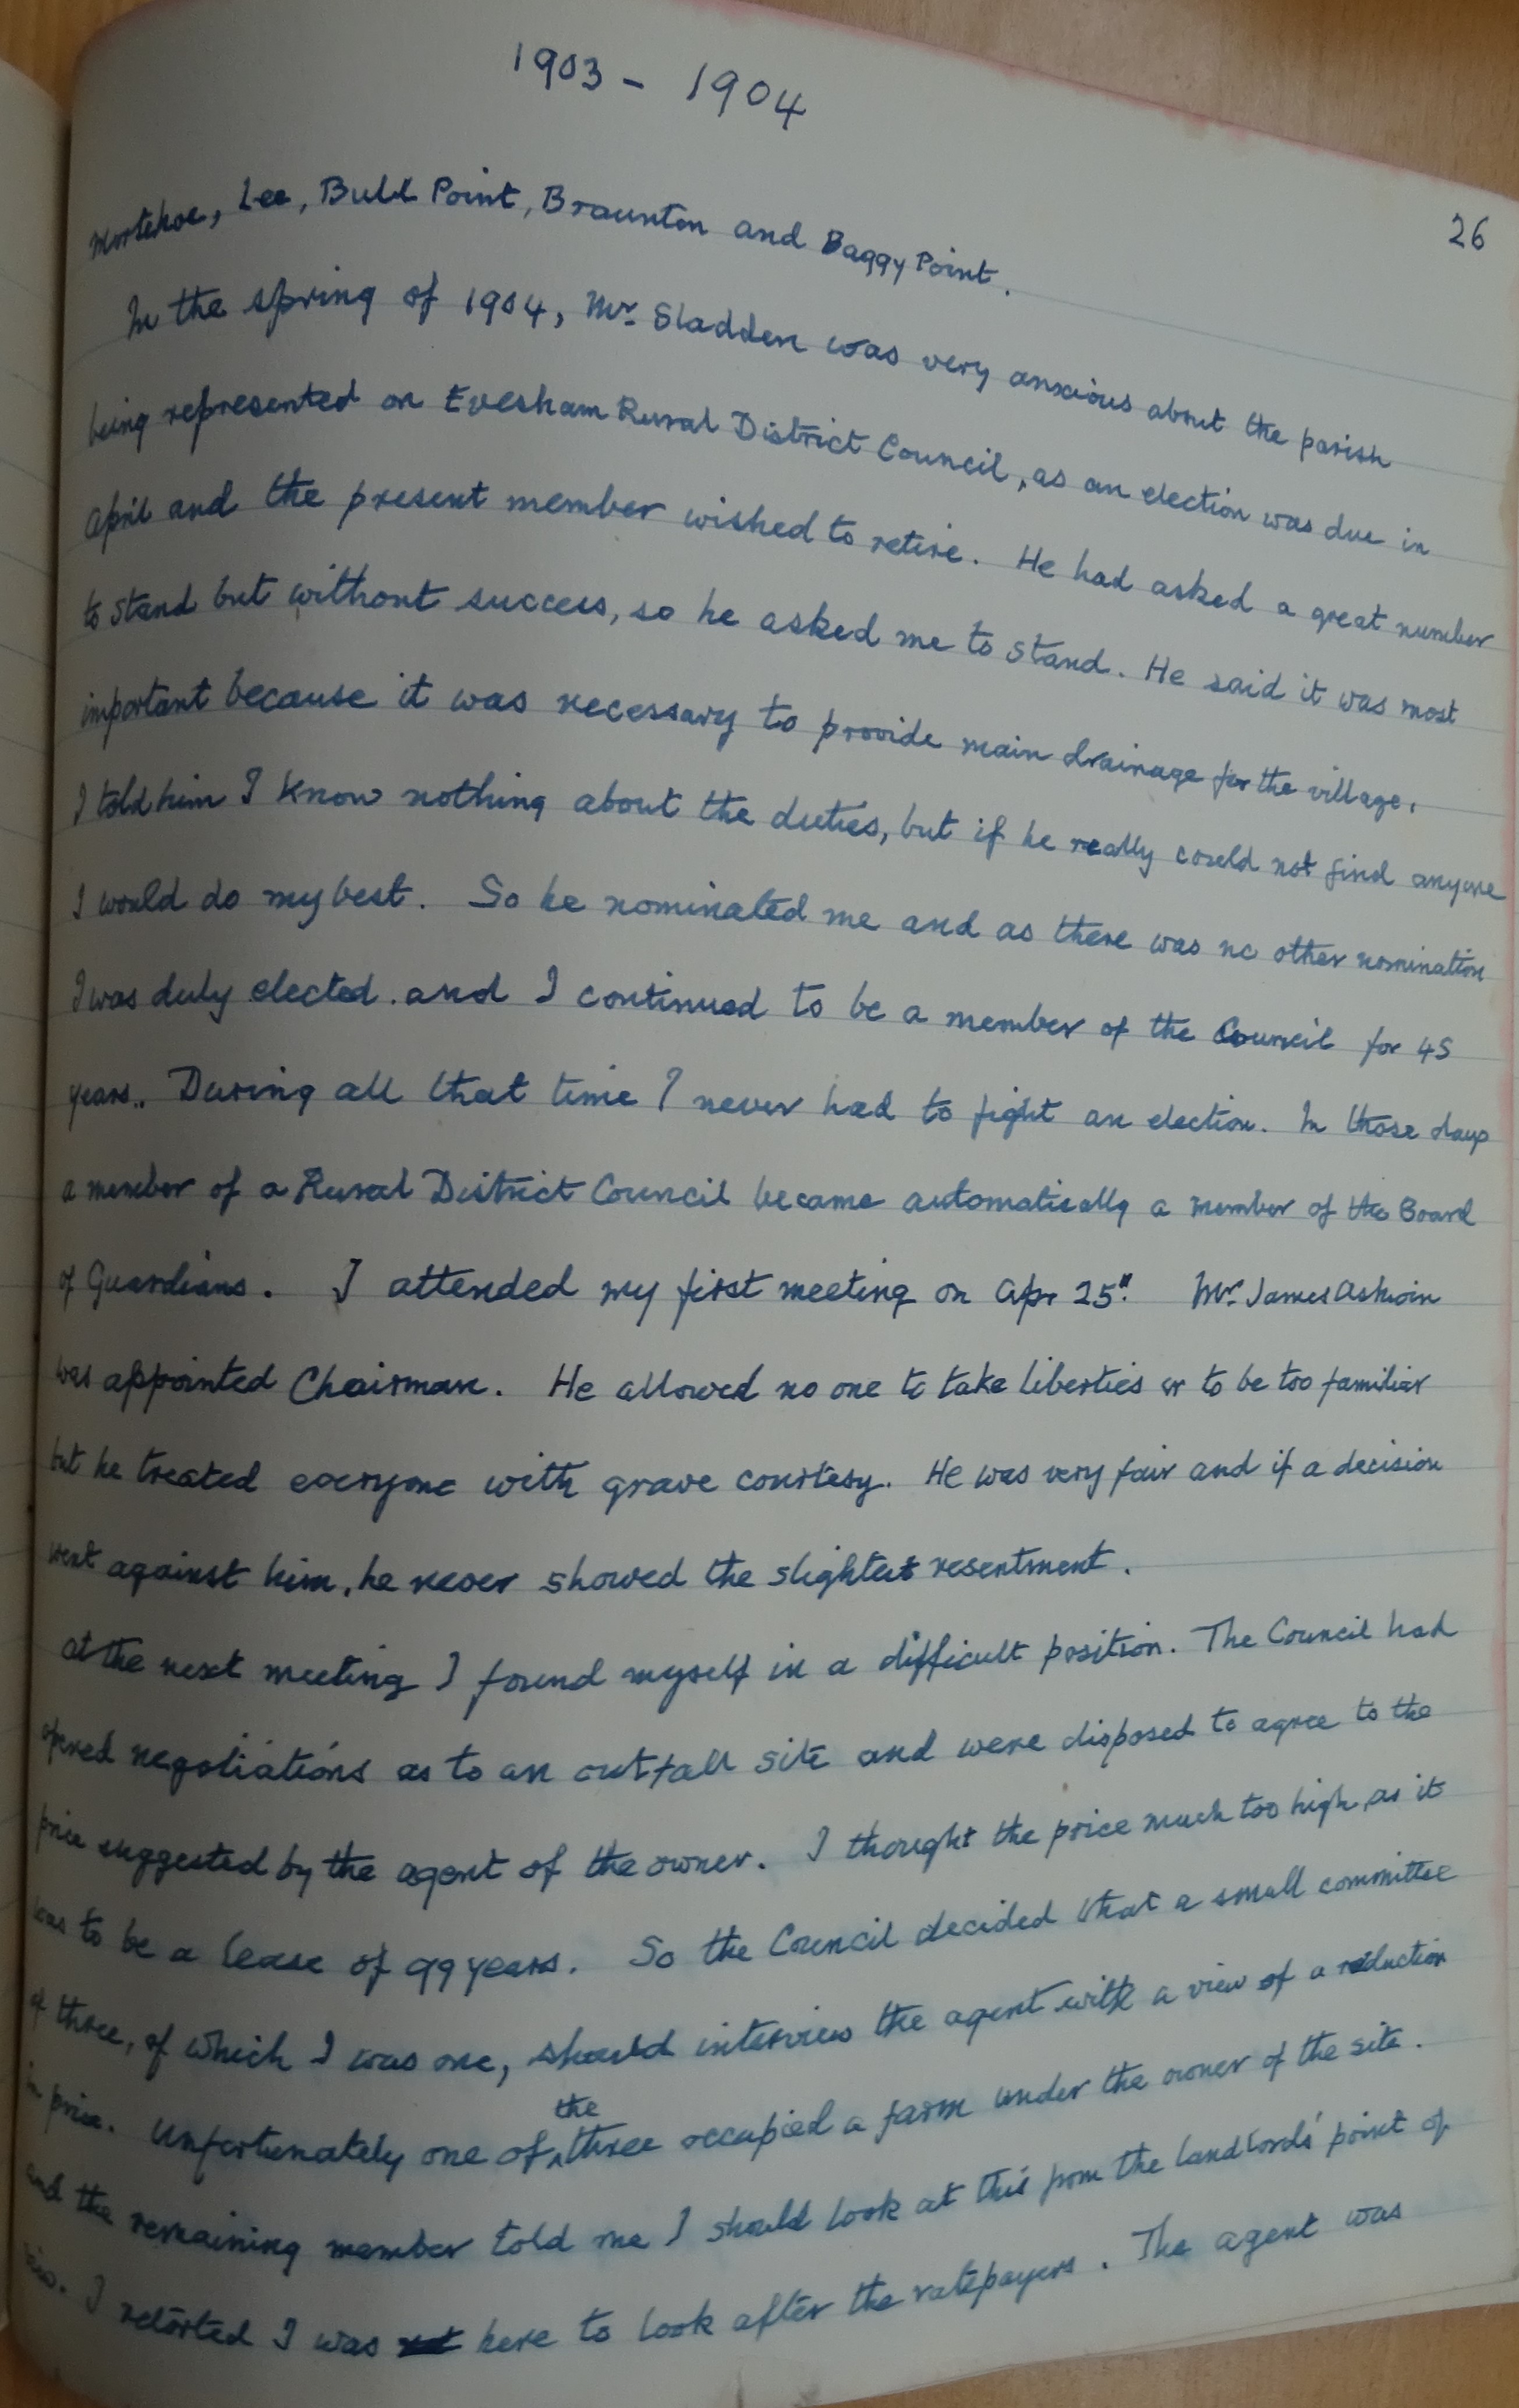 1903 - 1904
26
Mortehoe, Lee, Bull Point, Braunton and Baggy Point.
In the spring of 1904, Mr. Sladden was very anxious about the parish
being represented on Evesham Rural District Council, as an election was due in
April and the present member wished to retire. He had asked a great number
to stand but without success, so he asked me to stand. He said it was most
important because it was necessary to provide main drainage for the village.
I told him I know nothing about the duties, but if he really could not find anyone
I would do my best. So he nominated me and as there was no other nomination
I was duly elected. and I continued to be a member of the Council for 45
years.. During all that time I never had to fight an election. In those days
a member of a Rural District Council became automatically a member of the Board
of Guardians. I attended my first meeting on Apr 25". Mr. James Ashwin
was appointed Chairman. He allowed no one to take liberties or to be too familiar
but he treated everyone with grave courtesy. He was very fair and if a decision
went against him, he never showed the slightest resentment.
At the next meeting I found myself in a difficult position. The Council had
opened negotiations as to an outfall site and were disposed to agree to the
price suggested by the agent of the owner. I thought the price much too high, as it
was to be a lease of 99 years. So the Council decided that a small committee
of three, of which I was one, should interview the agent with a view of a reduction
in price. Unfortunately one of the three occupied a farm under the owner of the site.
and the remaining member told me I should look at this from the landlords' point of
view. I retorted I was here to look after the ratepayers. The agent was